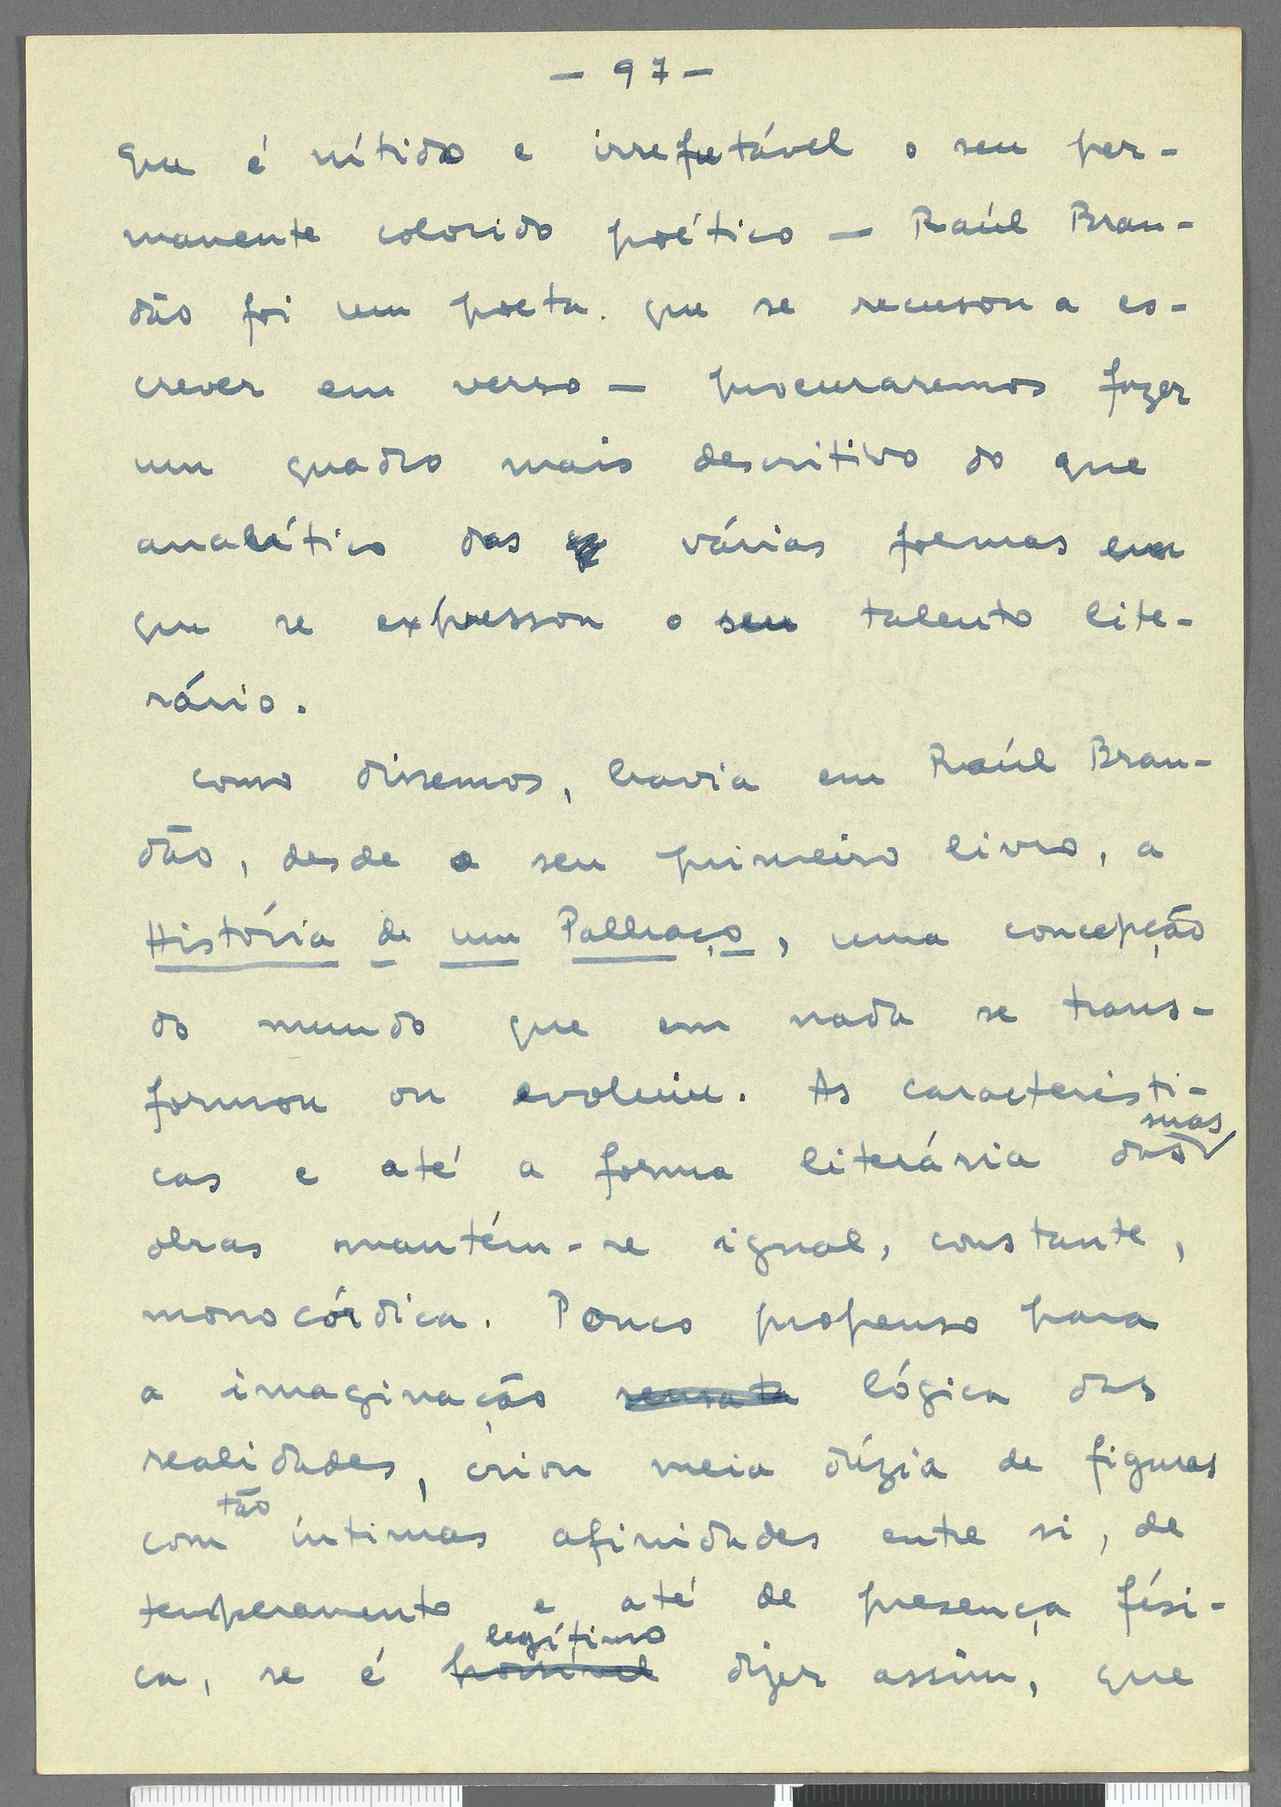 — 97 —
que é nítido e irrefutável o seu per-
manente colorido poético — Raúl Bran-
dão foi um poeta que se recusou a es-
crever em verso — procuraremos fazer
um quadro mais descritivo do que
analítico das várias formas em
que se expressou o seu talento lite-
rário.
Como dissemos, havia em Raúl Bran-
dão, desde o seu primeiro livro, a
História de um Palhaço, uma concepção
do mundo que em nada se trans-
formou ou evoluiu. As característi-
cas e até a forma literária das suas
obras mantém-se igual, constante,
monocórdica. Pouco propenso para
a imaginação sensata lógica das
realidades, criou meia dúzia de figuras
com tão íntimas afinidades entre si, de
temperamento e até de presença físi-
ca, se é possível legítimo dizer assim, que